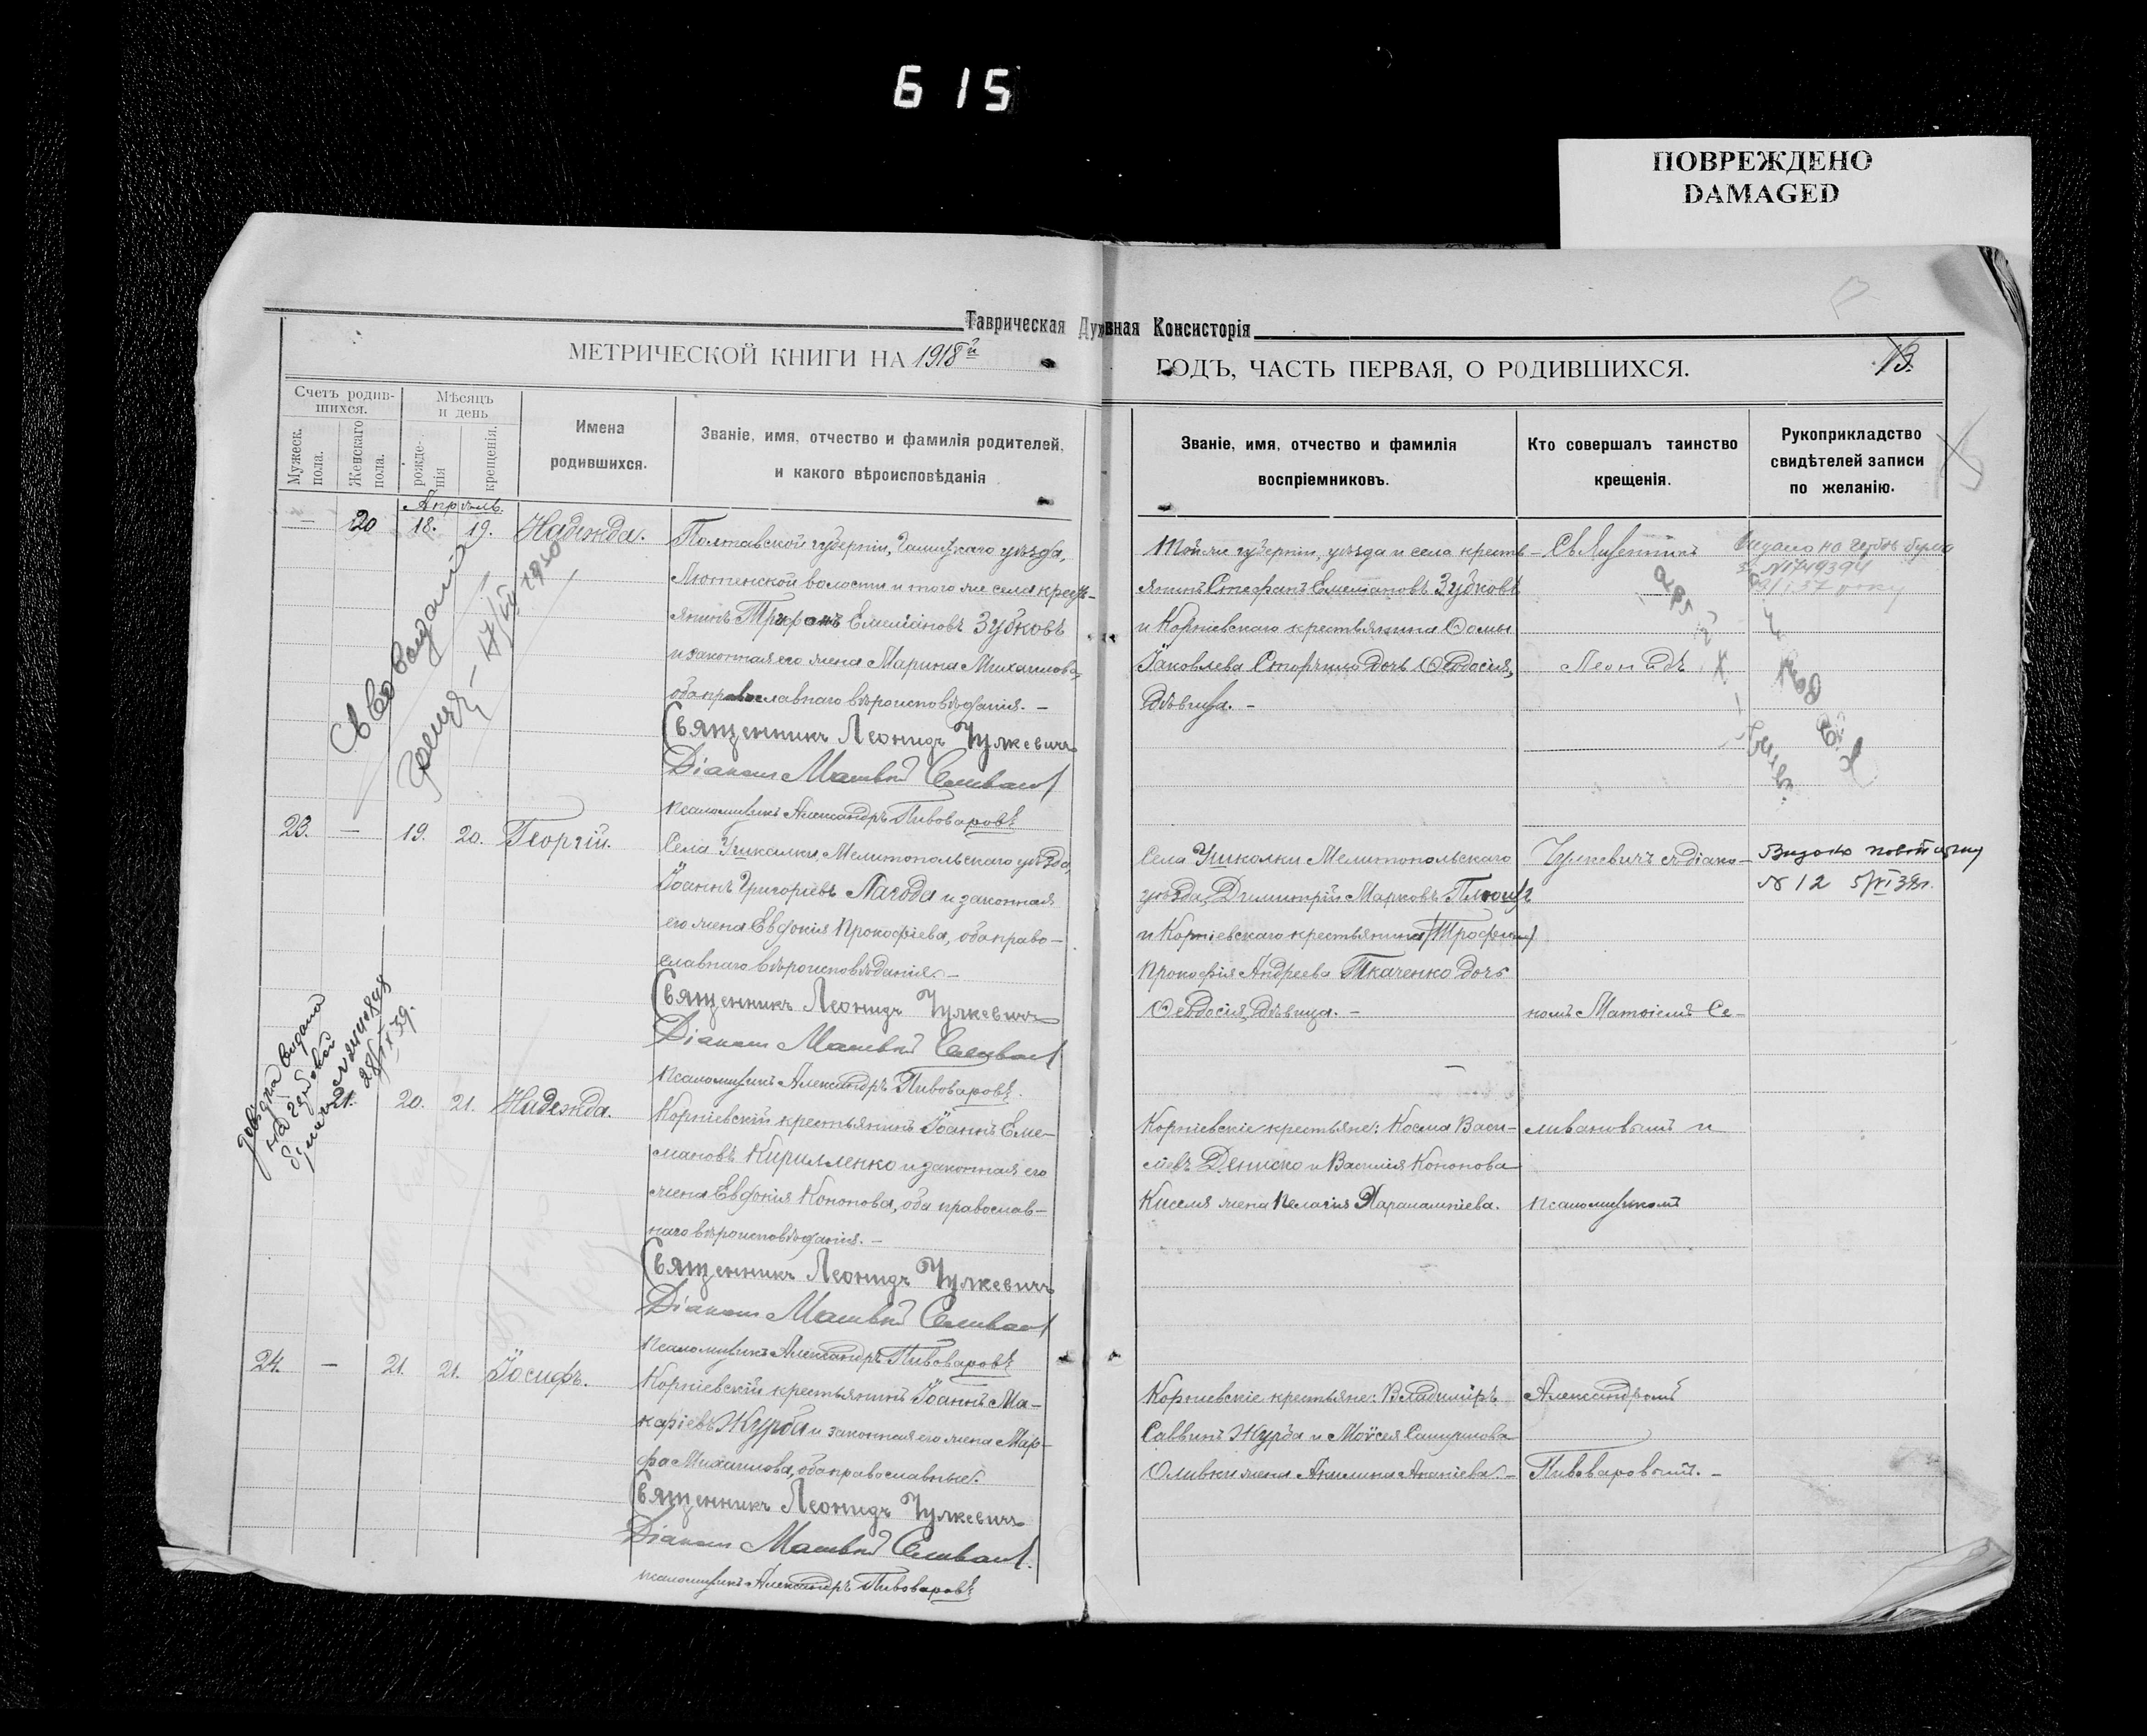 615
ПОВРЕЖДЕНО
DAMAGED
Таврическая Духовная Консисторія
МЕТРИЧЕСКОЙ КНИГИ НА 1918й
ГОДЪ, ЧАСТЬ ПЕРВАЯ, О РОДИВШИХСЯ.
13.
Счетъ родив-
шихся.
Мужеск.
пола.
Женскаго
пола.
Мѣсяцъ
и день
рожде-
нія
крещенія.
Имена
родившихся.
Званіе, имя, отчество и фамилія родителей,
и какого вѣроисповѣданія
Званіе, имя, отчество и фамилія
воспріемниковъ.
Кто совершалъ таинство
крещенія.
Рукоприкладство
свидѣтелей записи
по желанію.
Апрѣль.
— 20 18. 19. Надежда.
Полтавской губерніи, уѣзда,
Лютенской волости и того же села кресть-
янинъ Емеліановъ Зубковъ
и законная его жена Марина Михаилова,
оба православнаго вѣроисповѣданія. —
Священникъ Леонидъ Чулкевичъ
Діаконъ Матвѣй Селиванов
Псаломщикъ Александръ Пивоваровъ
Той же губерніи, уѣзда и села кресть-
янинъ Стефанъ Емеліановъ Зубковъ
и Корніевскаго крестьянина Ѳомы
Іаковлева дочь Ѳеодосія,
дѣвица. —
Священникъ
Леонидъ
23. — 19. 20. Георгій.
Села Мелитопольскаго уѣзда,
Іоаннъ Григоріевъ Лагода и законная
его жена Евдокія Прокофіева, оба право-
славнаго вѣроисповѣданія. —
Священникъ Леонидъ Чулкевичъ
Діаконъ Матвѣй Селиванов
Псаломщикъ Александръ Пивоваровъ.
Села Мелитопольскаго
уѣзда, Димитрій Марковъ
и Корніевскаго крестьянина
Прокофія Андреева Ткаченко дочь
Ѳеодосія, дѣвица. —
Чулкевичъ съ діако-
номъ Матѳіемъ Се-
№ 12
21. 20. 21. Надежда.
Корніевскій крестьянинъ Іоаннъ Еме-
ліановъ Кирилленко и законная его
жена Евдокія Кононова, оба православ-
наго вѣроисповѣданія. —
Священникъ Леонидъ Чулкевичъ
Діаконъ Матвѣй Селиванов
Псаломщикъ Александръ Пивоваровъ
Корніевскіе крестьяне: Косма Васи-
ліевъ Дениско и Василія Кононова
Киселя жена Пелагія Харалампіева.
ливановымъ и
псаломщикомъ
24. — 21. 21. Іосифъ.
Корніевскій крестьянинъ Іоаннъ Ма-
каріевъ Журба и законная его жена Мар-
фа Михаилова, оба православные.
Священникъ Леонидъ Чулкевичъ
Діаконъ Матвѣй Селиванов.
Псаломщикъ Александръ Пивоваровъ
Корніевскіе крестьяне: Владиміръ
Саввинъ Журба и Моѵсея
Оливки жена Акилина Ананіева. —
Александромъ
Пивоваровымъ. —